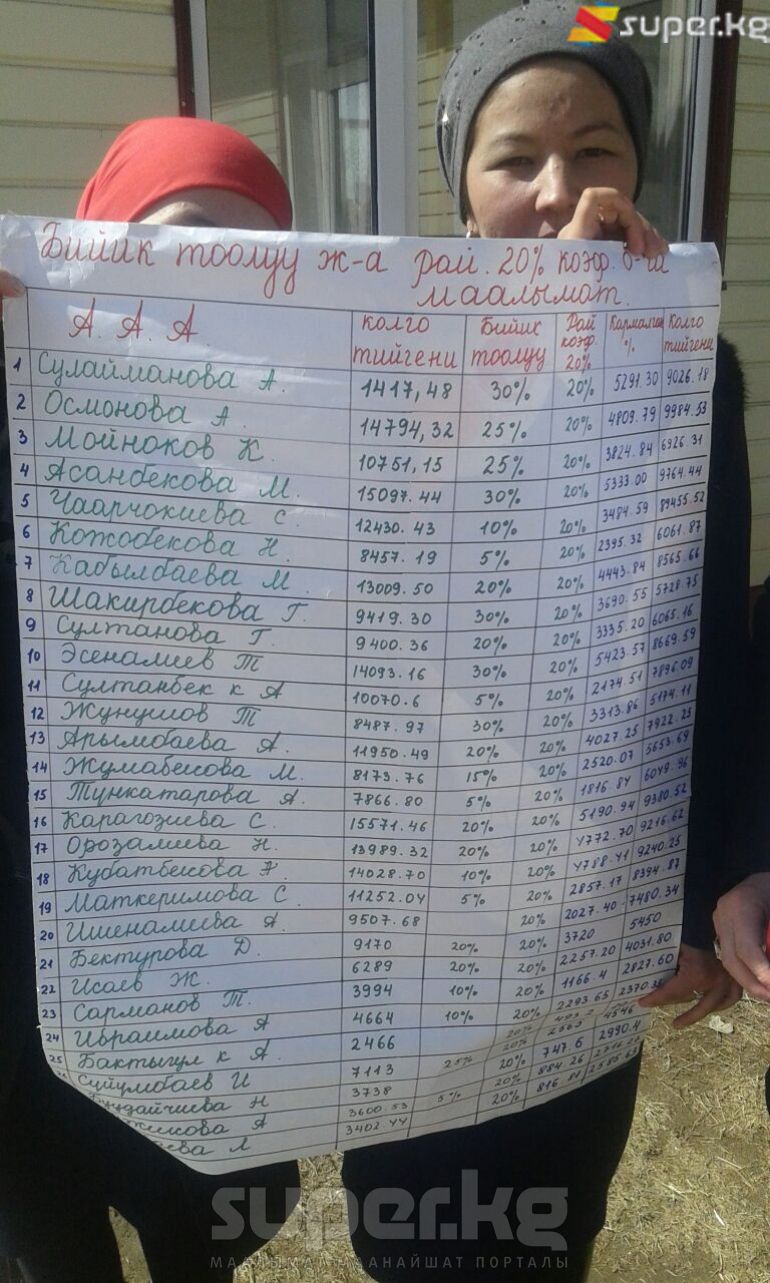 super.kg
Бийик тоолуу ж-а рай. 20% коэф. б-ча
маалымат.
А. А. А. колго тийгени Бийик тоолуу Рай коэф. 20% Кармалган % Колго тийгени
1 Сулайманова А. 1417,48 30% 20% 5291.30 9026.18
2 Осмонова А. 14794,32 25% 20% 4809.79 9984.53
3 Мойноков К. 10751,15 25% 20% 3824.84 6926.31
4 Асанбекова М. 15097.44 30% 20% 5333.00 9764.44
5 Чаарчокиева С. 12430.43 10% 20% 3484.59 89455.52
6 Кожобекова Н. 8457.19 5% 20% 2395.32 6061.87
7 Кабылбаева М 13009.50 20% 20% 4443.84 8565.66
8 Шакирбекова Г. 9419.30 30% 20% 3690.55 5728.75
9 Султанова Г. 9400.36 20% 20% 3335.20 6065.16
10 Эсеналиев Т 14093.16 30% 20% 5423.57 8669.59
11 Султанбек к А 10070.6 5% 20% 2174.51 7896.09
12 Жунушов Т 8487.97 30% 20% 3313.86 5174.11
13 Арымбаева А. 11950.49 20% 20% 4027.25 7922.25
14 Жумабекова М. 8173.76 15% 20% 2520.07 5653.69
15 Тункатарова А. 7866.80 5% 20% 1816.84 6049.96
16 Карагозиева С. 15571.46 20% 20% 5190.94 9380.52
17 Орозалиева Н. 13989.32 20% 20% 4772.70 9216.62
18 Кубатбекова 14028.70 10% 20% 4788.41 9240.25
19 Маткеримова С. 11252.04 5% 20% 2857.17 8394.87
20 Ишеналиева А. 9507.68 20% 2027.40 7480.34
21 Бектурова Д. 9170 20% 20% 3720 5450
22 Исаев Ж. 6289 20% 20% 2257.20 4031.80
23 Сарманов Т. 3994 10% 20% 1166.4 2827.60
24 Ибраимова А 4664 10% 20% 2293.65
25 Бактыгул к А. 2466 20%
Суйумбаев И 7113 25% 20% 4546
Н 3738 20% 747.6 2990.4
А 3600.53 5% 20% 884.26
Л 3402.44 20% 816.81
super.kg
МААЛЫМАТ МАANАЙШАТ ПОРТАЛЫ